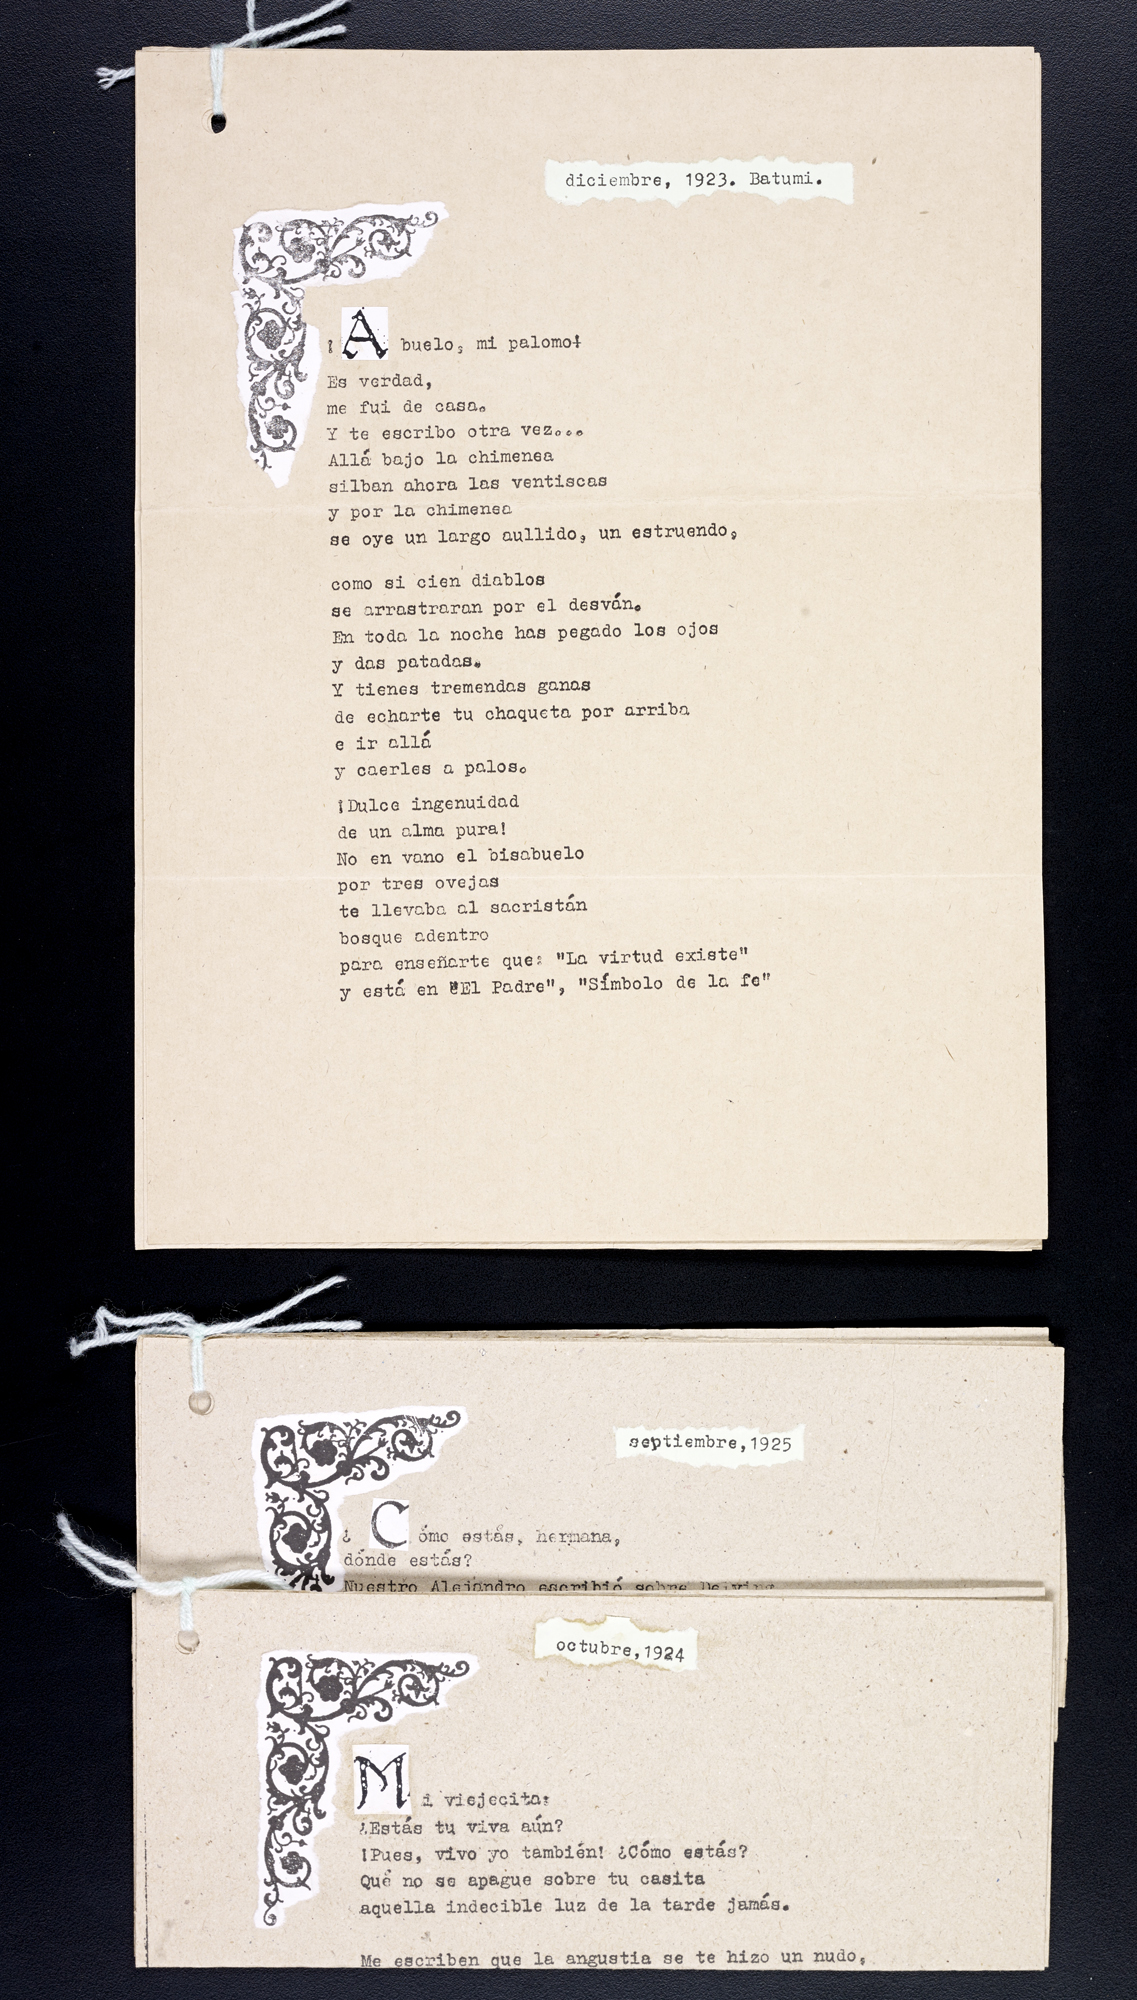 diciembre, 1923. Batumi.
¡Abuelo, mi palomo!
Es verdad,
me fui de casa.
Y te escribo otra vez...
Allá bajo la chimenea
silban ahora las ventiscas
y por la chimenea
se oye un largo aullido, un estruendo,
como si cien diablos
se arrastraran por el desván.
En toda la noche has pegado los ojos
y das patadas.
Y tienes tremendas ganas
de echarte tu chaqueta por arriba
e ir allá
y caerles a palos.
¡Dulce ingenuidad
de un alma pura!
No en vano el bisabuelo
por tres ovejas
te llevaba al sacristán
bosque adentro
para enseñarte que: "La virtud existe"
y está en "El Padre", "Símbolo de la fe"
septiembre,1925
¿Cómo estás, hermana,
dónde estás?
Nuestro Alejandro escribió sobre
octubre,1924
Mi viejecita:
¿Estás tu viva aún?
¡Pues, vivo yo también! ¿Cómo estás?
Qué no se apague sobre tu casita
aquella indecible luz de la tarde jamás.
Me escriben que la angustia se te hizo un nudo,